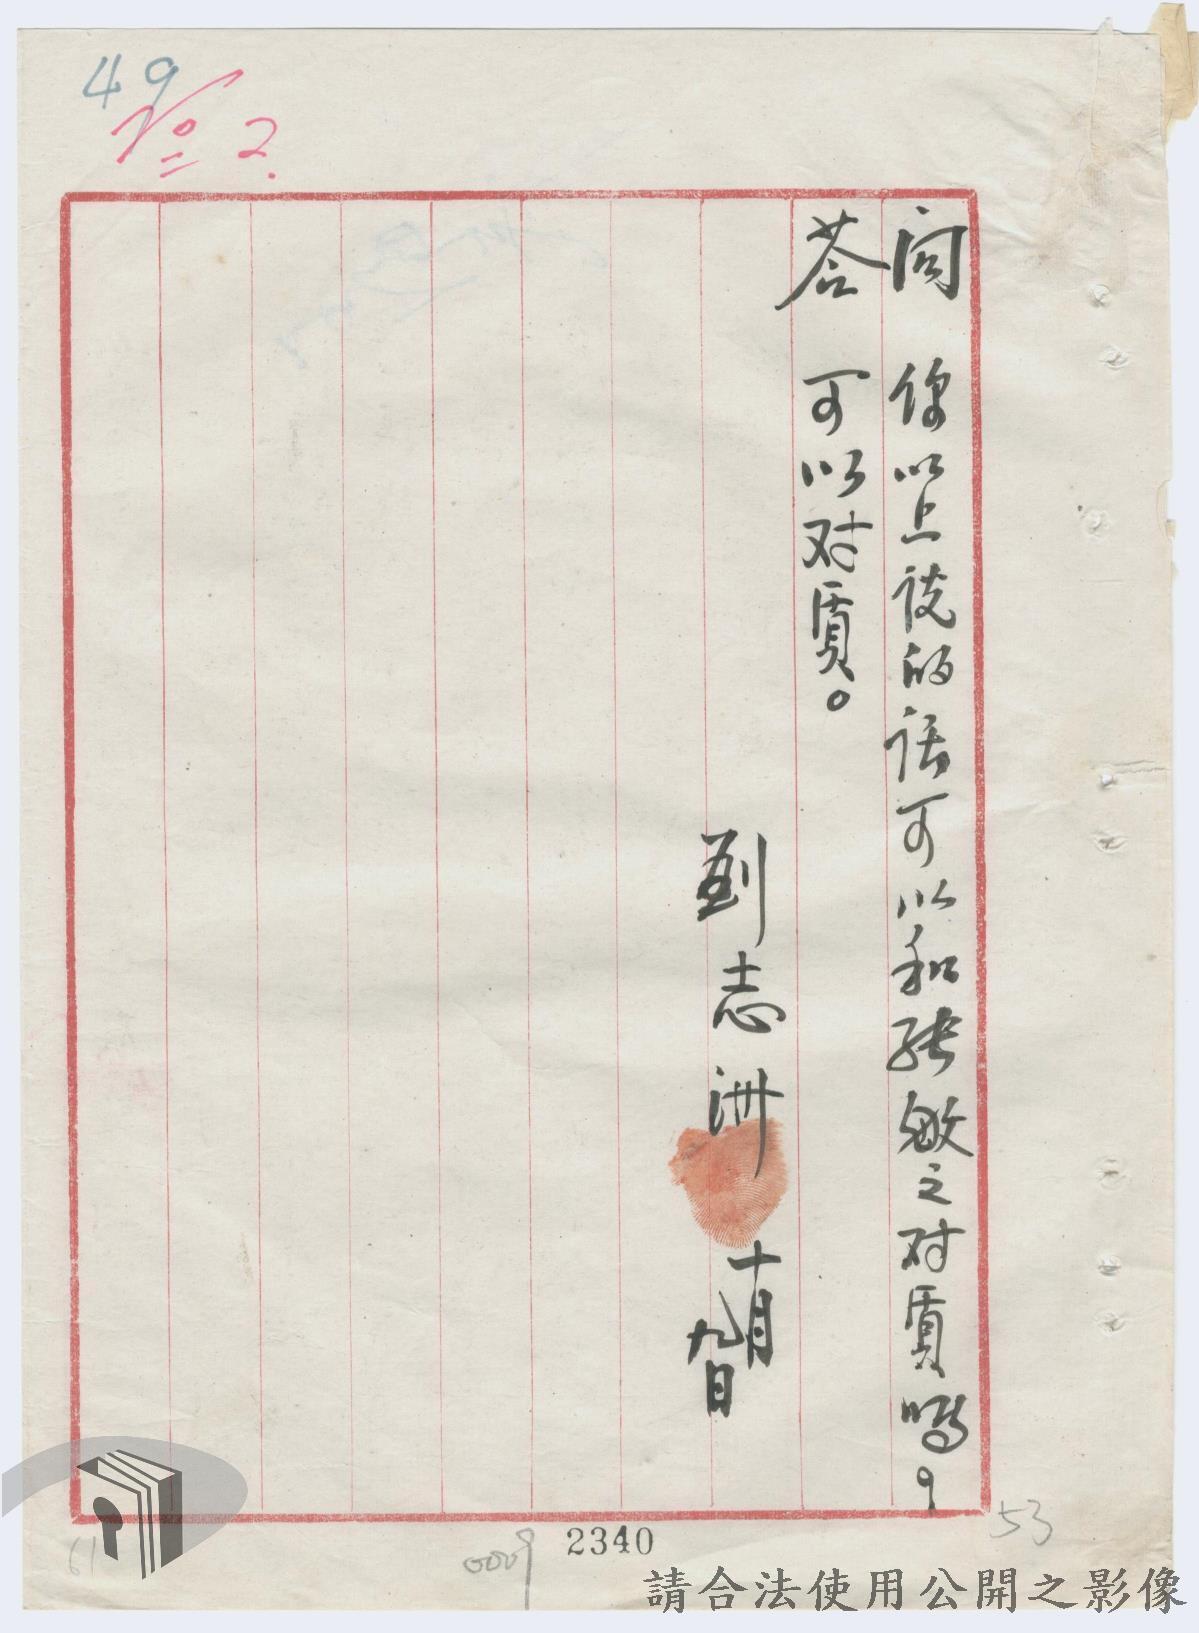 49
No 2.
问 你以上说的话可以和张敏之对质吗?
荅 可以对质。
刘志洲
十月九日
53
61
0009
2340
請合法使用公開之影像